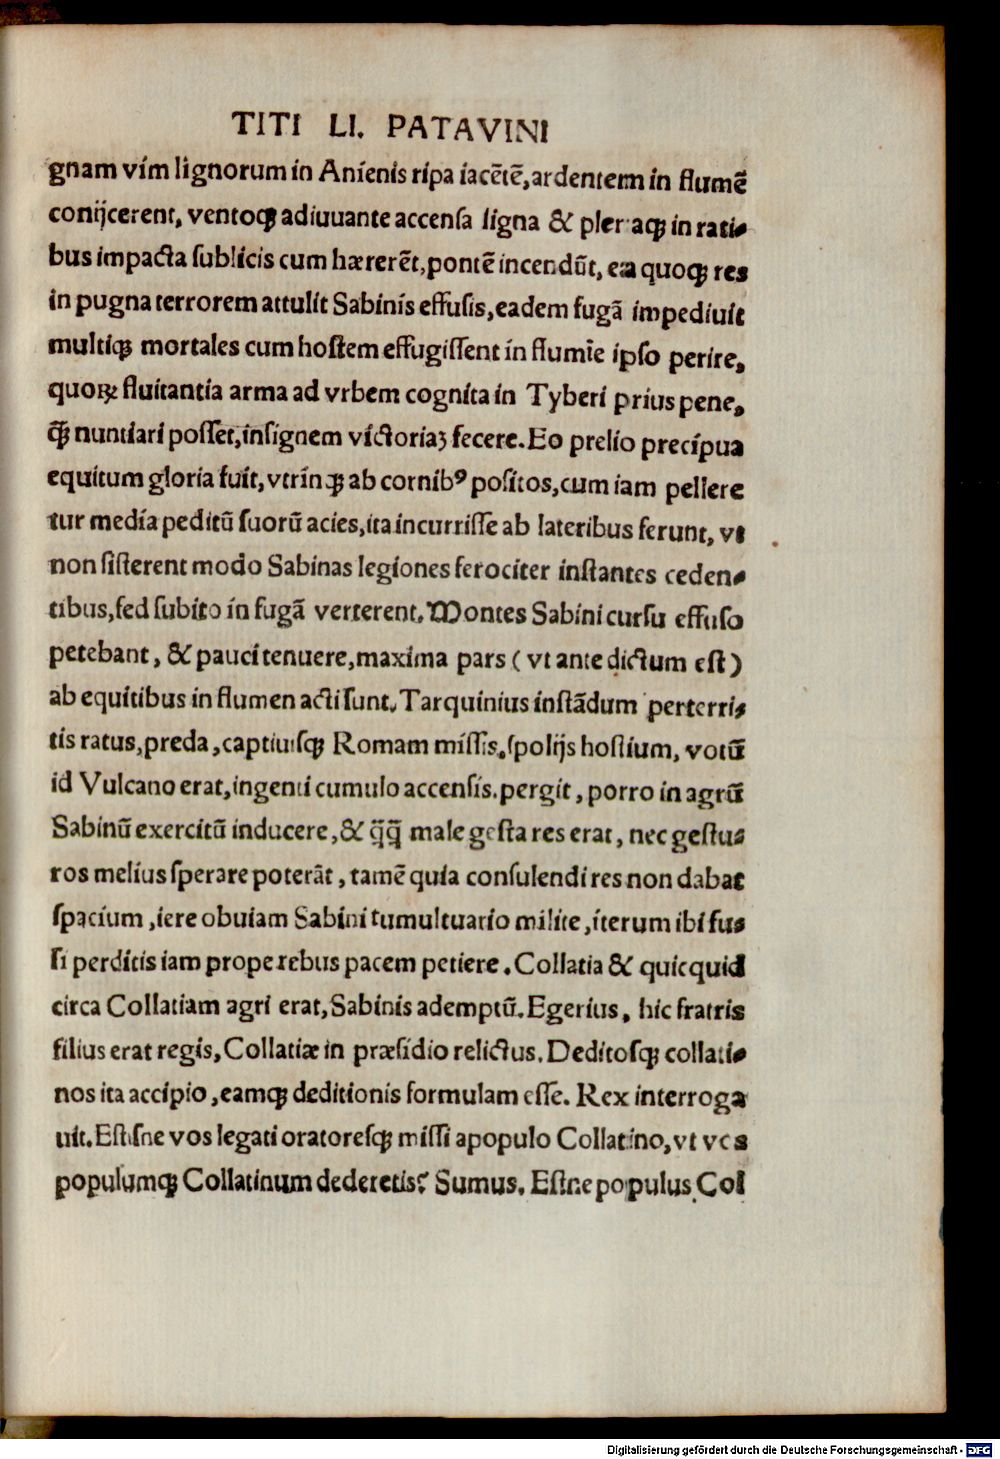 TITI LI. PATAVINI
gnam vim lignorum in Anienis ripa iacētē, ardentem in flumē
conijcerent, ventoqꝫ adiuuante accensa ligna & pleraqꝫ in rati-
bus impacta sublicis cum hærerēt, pontē incendūt, ea quoqꝫ res
in pugna terrorem attulit Sabinis effusis, eadem fugā impediuit
multiqꝫ mortales cum hostem effugissent in flumīe ipso perire,
quoꝝ fluitantia arma ad vrbem cognita in Tyberi prius pene,
q̄ꝫ nuntiari posset, insignem victoriaꝫ fecere. Eo prelio precipua
equitum gloria fuit, vtrinqꝫ ab cornibꝰ positos, cum iam pellere
tur media peditū suorū acies, ita incurrisse ab lateribus ferunt, vt
non sisterent modo Sabinas legiones ferociter instantes ceden-
tibus, sed subito in fugā verterent. Montes Sabini cursu effuso
petebant, & pauci tenuere, maxima pars ( vt ante dictum est )
ab equitibus in flumen acti sunt. Tarquinius instādum perterri-
tis ratus, preda, captiuisqꝫ Romam missis, spolijs hostium, votū
id Vulcano erat, ingenti cumulo accensis. pergit, porro in agrū
Sabinū exercitū inducere, & q̄q̄ male gesta res erat, nec gestu-
ros melius sperare poterāt, tamē quia consulendi res non dabat
spacium, iere obuiam Sabini tumultuario milite, iterum ibi fu-
si perditis iam prope rebus pacem petiere. Collatia & quicquid
circa Collatiam agri erat, Sabinis ademptū. Egerius, hic fratris
filius erat regis, Collatiæ in præsidio relictus. Deditosqꝫ collati-
nos ita accipio, eamqꝫ deditionis formulam esse. Rex interroga
uit. Estisne vos legati oratoresqꝫ missi apopulo Collatino, vt vos
populumqꝫ Collatinum dederetis? Sumus. Estne populus Col
Digitalisierung gefördert durch die Deutsche Forschungsgemeinschaft - DFG